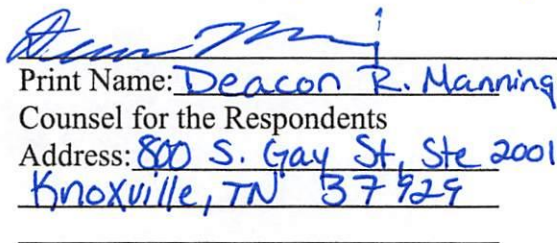 Print Name: Deacon R. Manning
Counsel for the Respondents
Address: 800 S. Gay St, Ste 2001
Knoxville, TN 37929